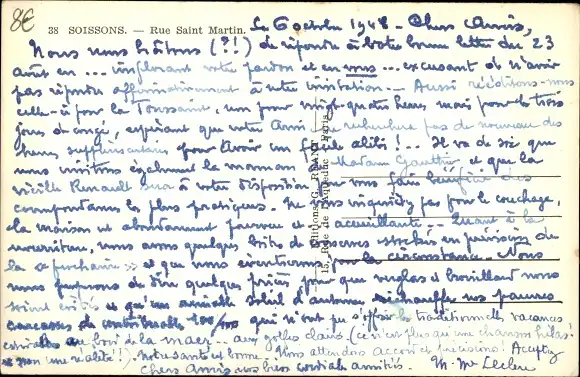 8€
38 SOISSONS. — Rue Saint Martin.
Le 6 octobre 1948 - Chers Amis,
Nous nous hâtons (?!) de répondre à votre bonne lettre du 23
août en ... implorant votre pardon et en vous ... excusant de n'avoir
pas répondu affirmativement à votre invitation - Aussi rééditons-nous
celle-ci pour la Toussaint, non pour vingt-quatre heures mais pour les trois
jours de congé, espérant que votre Ami ne recherchera pas de nouveau des
heures supplémentaires pour avoir un facile alibi! .. Il va de soi que
nous invitons également la maman Madame Gauthier et que la
vieille Renault sera à votre disposition pour vous faire bénéficier des
correspondances les plus pratiques. Ne vous inquiétez pas pour le couchage,
la maison est abondamment pourvue et accueillante - Quant à la
nourriture, nous avons quelques boîtes de conserves stockées en prévision de
la "prochaine" et que nous éventrerons pour la circonstance. Nous
nous proposons de dire quelques prières pour que verglas et brouillard nous
soient évités et qu'un aimable soleil d'automne réchauffe nos pauvres
carcasses de contribuables 100/100 qui n'ont pu s'offrir les traditionnelles vacances
estivales au bord de la mer ... aux golfes clairs. (ce n'est plus qu'une chanson hélas!
et non une réalité!!). Notre santé est bonne. Nous attendons accord et précisions! Acceptez
Chers Amis nos bien cordiales amitiés. M. Me Leclere
Editions G. RÉANT
15, Rue de l'Aqueduc - Paris